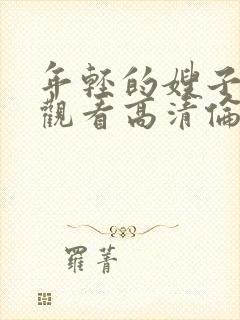 年轻的嫂子
觀看高清倫
羅菁